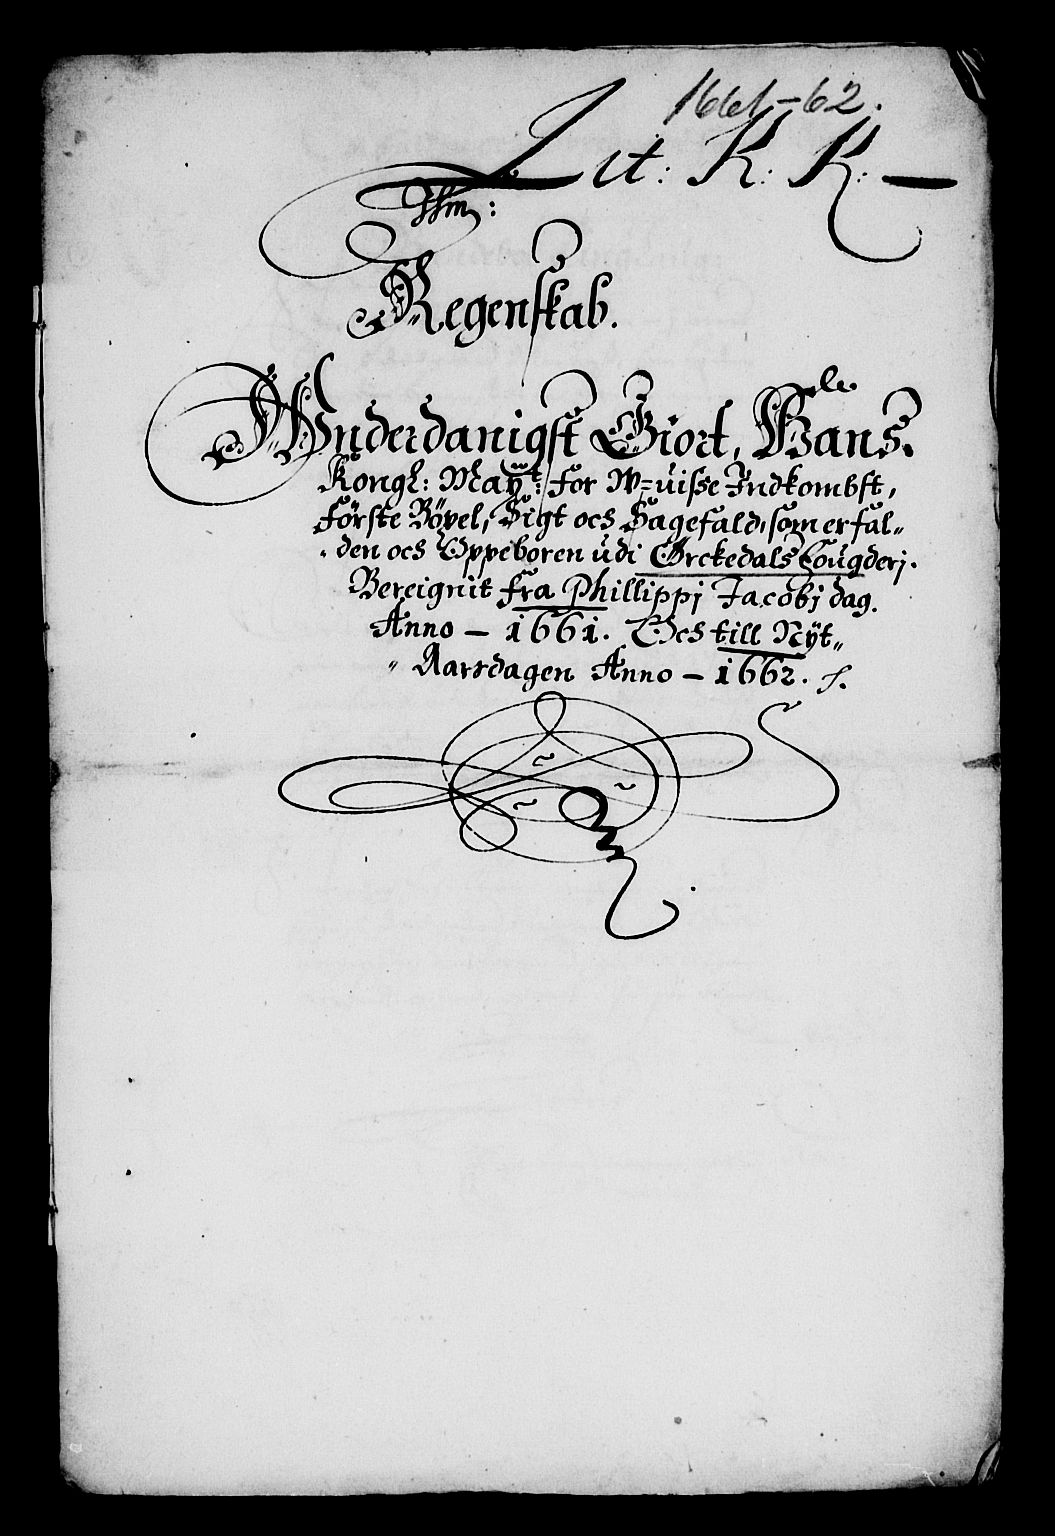 1661-62.
Lit: K. K:
Regenskab.
Wnderdanigst Giort, Hans
Kongl: Maÿtt: For W=uisse Indkombst,
Förste Böxel, Sigt och Sagefald, som er fal„
„den och Oppeboren udi Ørckedals Fougderj.
Bereignit fra Phillippj Jacobj dag.
Anno — 1661. Och till Nÿt„
„ Aarsdagen Anno — 1662.